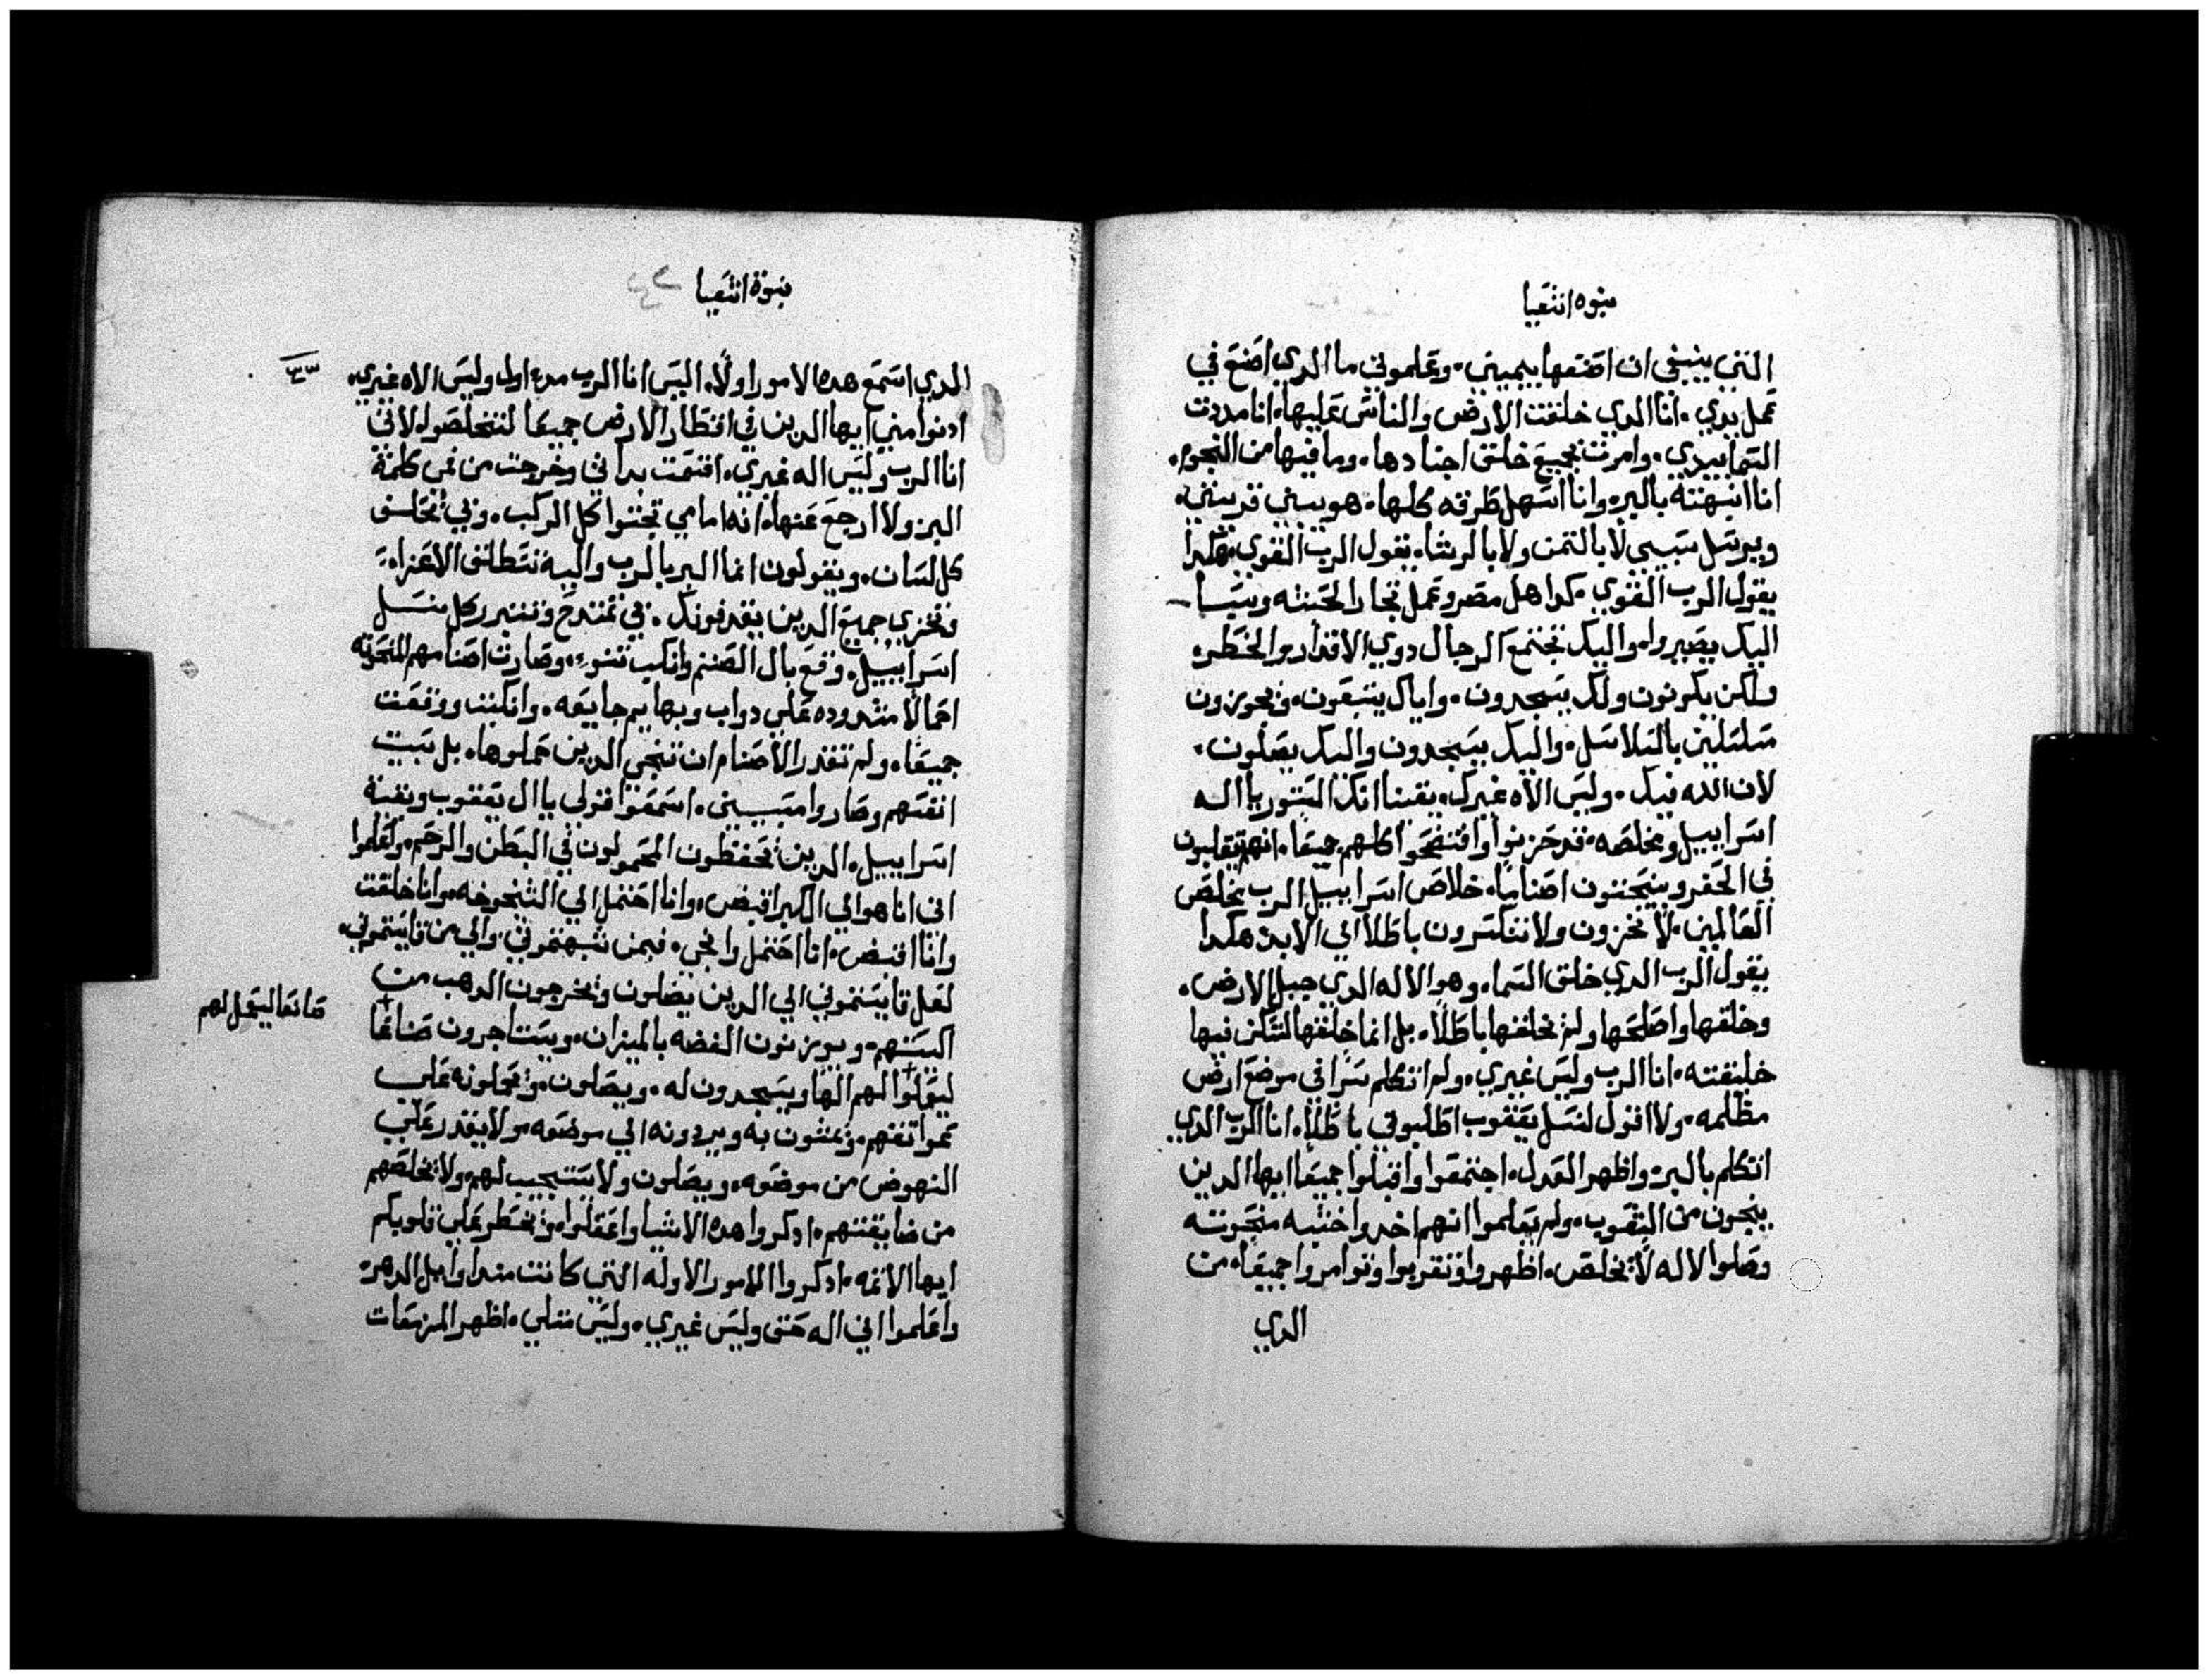 نبوه اشعيا
التي ينبغي ان اصنعها بيميني. وتعلموني ما الدي اصنع في
عمل يدي. انا الدي خلقت الارض والناس عليها. انا مددت
السما بيدي. وامرت بجميع خلق اجنادها. وما فيها من النجوم.
انا انبهته بالبر. وانا اسهل طرقه كلها. هو يبني قريتي.
ويرسل سبيي لا بالتمن ولا بالرشا. يقول الرب القوي. هكدا
يقول الرب القوي. كد اهل مصر وعمل تجار الحبشه وسبا
اليك يصيروا. واليك تجتمع الرجال دوي الاقدار والخطر.
ولكن يكونون ولك يسجدون. واياك يتبعون. ويجوزون
مسلسلين بالسلاسل. واليك يسجدون واليك يصلون.
لان الله فيك. وليس الاه غيرك. يقينا انك المستور يا اله
اسراييل ومخلصه. قد خزيوا وافتضحوا كلهم جميعا. انهم يتقلبون
في الحفر وينحتون اصناما. خلاص اسراييل الرب يخلص
العالمين. لا تخزون ولا تنكسرون باطلا الي الابد. هكدا
يقول الرب الدي خلق السما. وهو الاله الدي جبل الارض.
وخلقها واصلحها ولم يخلقها باطلا. بل انما خلقها لتسكن فيها
خليقته. انا الرب وليس غيري. ولم اتكلم سرا في موضع ارض
مظلمه. ولا اقول لنسل يعقوب اطلبوني باطلا. انا الرب الدي
اتكلم بالبر. واظهر العدل. اجتمعوا واقبلوا جميعا ايها الدين
ينجون من الشعوب. ولم يعلموا انهم اخدوا خشبه منحوته
وصلوا لاله لا يخلص. اظهروا وتقربوا وتوامروا جميعا. من
الدي
نبوة اشعيا
الدي اسمع هده الامور اولا. اليس انا الرب مند اول وليس الاه غيري.
ادنوا مني ايها الدين في اقطار الارض جميعا لتتخلصوا. لاني
انا الرب وليس اله غيري. اقسمت بداتي وخرجت من فمي كلمة
البر ولا ارجع عنها. انه امامي تجثوا كل الركب. وبي تحلف
كل لسان. ويقولون انما البر بالرب واليه تنطلق الاعزا.
وتخزي جميع الدين يقدفونك. في تمتدح وتتبرر كل نسل
اسراييل. وقع بال الصنم وانكب نبوء. وصارت اصنامهم المنحوته
احمالا مشدوده علي دواب وبهايم جايعه. وانكبت ووقعت
جميعا. ولم تقدر الاصنام ان تنجي الدين حملوها. بل سبيت
انفسهم وصاروا مسبيين. اسمعوا قولي يا ال يعقوب وبقية
اسراييل. الدين تحفظون المحمولون في البطن والرحم. واعلموا
اني انا هو الي الكبر اقبض. وانا احتمل الي الشيخوخه. وانا خلقت
وانا اقبض. انا احتمل وانجي. فبمن شبهتموني. والي من قايستموني.
لعل قايستموني الي الدين يضلون ويخرجون الدهب من
اكيستهم. ويوزنون الفضه بالميزان. ويستاجرون صناعا
صانعا ليعمل لهم
ليعملوا لهم الها ويسجدون له. ويصلون. ويحملونه علي
عواتقهم. ويمشون به ويردونه الي موضعه. ولا يقدر علي
النهوض من موضعه. ويصلون ولا يستجيب لهم. ولا يخلصهم
من ضايقتهم. ادكروا هده الاشيا واعقلوا. ويخطر علي قلوبكم
ايها الاثمه. ادكروا الامور الاوله التي كانت مند اوايل الدهر.
واعلموا اني اله حق وليس غيري. وليس مثلي. اظهر المزمعات